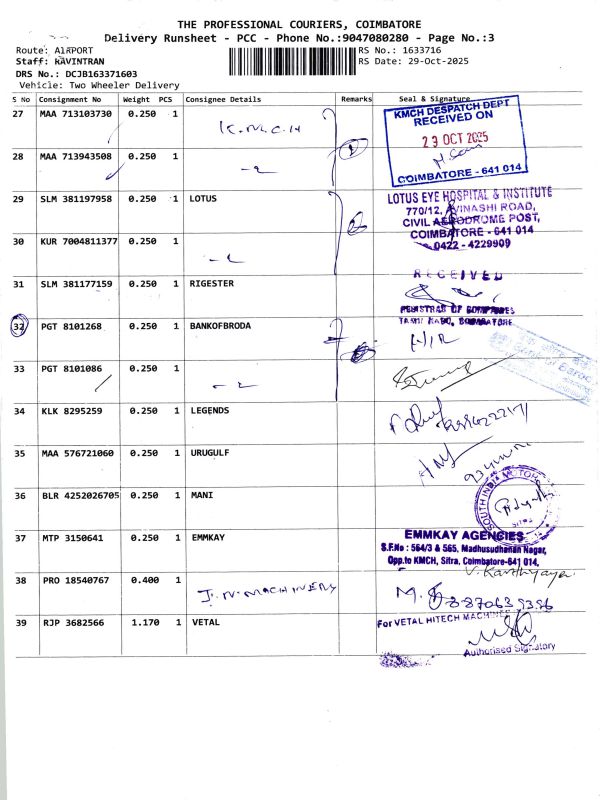 THE PROFESSIONAL COURIERS, COIMBATORE
Delivery Runsheet - PCC - Phone No.:9047080280 - Page No.:3
Route: AIRPORT
RS No.: 1633716
Staff: RAVINTRAN
RS Date: 29-Oct-2025
DRS No.: DCJB163371603
Vehicle: Two Wheeler Delivery
S No Consignment No Weight PCS Consignee Details Remarks Seal & Signature
27 MAA 713103730 0.250 1 K.M.C.H
KMCH DESPATCH DEPT
RECEIVED ON
OCT 2025
COIMBATORE - 641 014
28 MAA 713943508 0.250 1
29 SLM 381197958 0.250 1 LOTUS
LOTUS EYE HOSPITAL & INSTITUTE
770/12, AVINASHI ROAD,
CIVIL AERODROME POST,
COIMBATORE - 641 014
0422 - 4229909
30 KUR 7004811377 0.250 1
31 SLM 381177159 0.250 1 RIGESTER
RECEIVED
REGISTRAR OF COMPANIES
TAMIL NADU, COIMBATORE
32 PGT 8101268 0.250 1 BANKOFBRODA
33 PGT 8101086 0.250 1
34 KLK 8295259 0.250 1 LEGENDS
35 MAA 576721060 0.250 1 URUGULF
36 BLR 4252026705 0.250 1 MANI
SOUTH INDIA MOTORS
SITRA
37 MTP 3150641 0.250 1 EMMKAY
EMMKAY AGENCIES
S.F.No : 564/3 & 565, Madhusudhanan Nagar,
Opp.to KMCH, Sitra, Coimbatore-641 014.
38 PRO 18540767 0.400 1 J.N. MACHINERY
39 RJP 3682566 1.170 1 VETAL
For VETAL HITECH MACHINE
Authorised Signatory